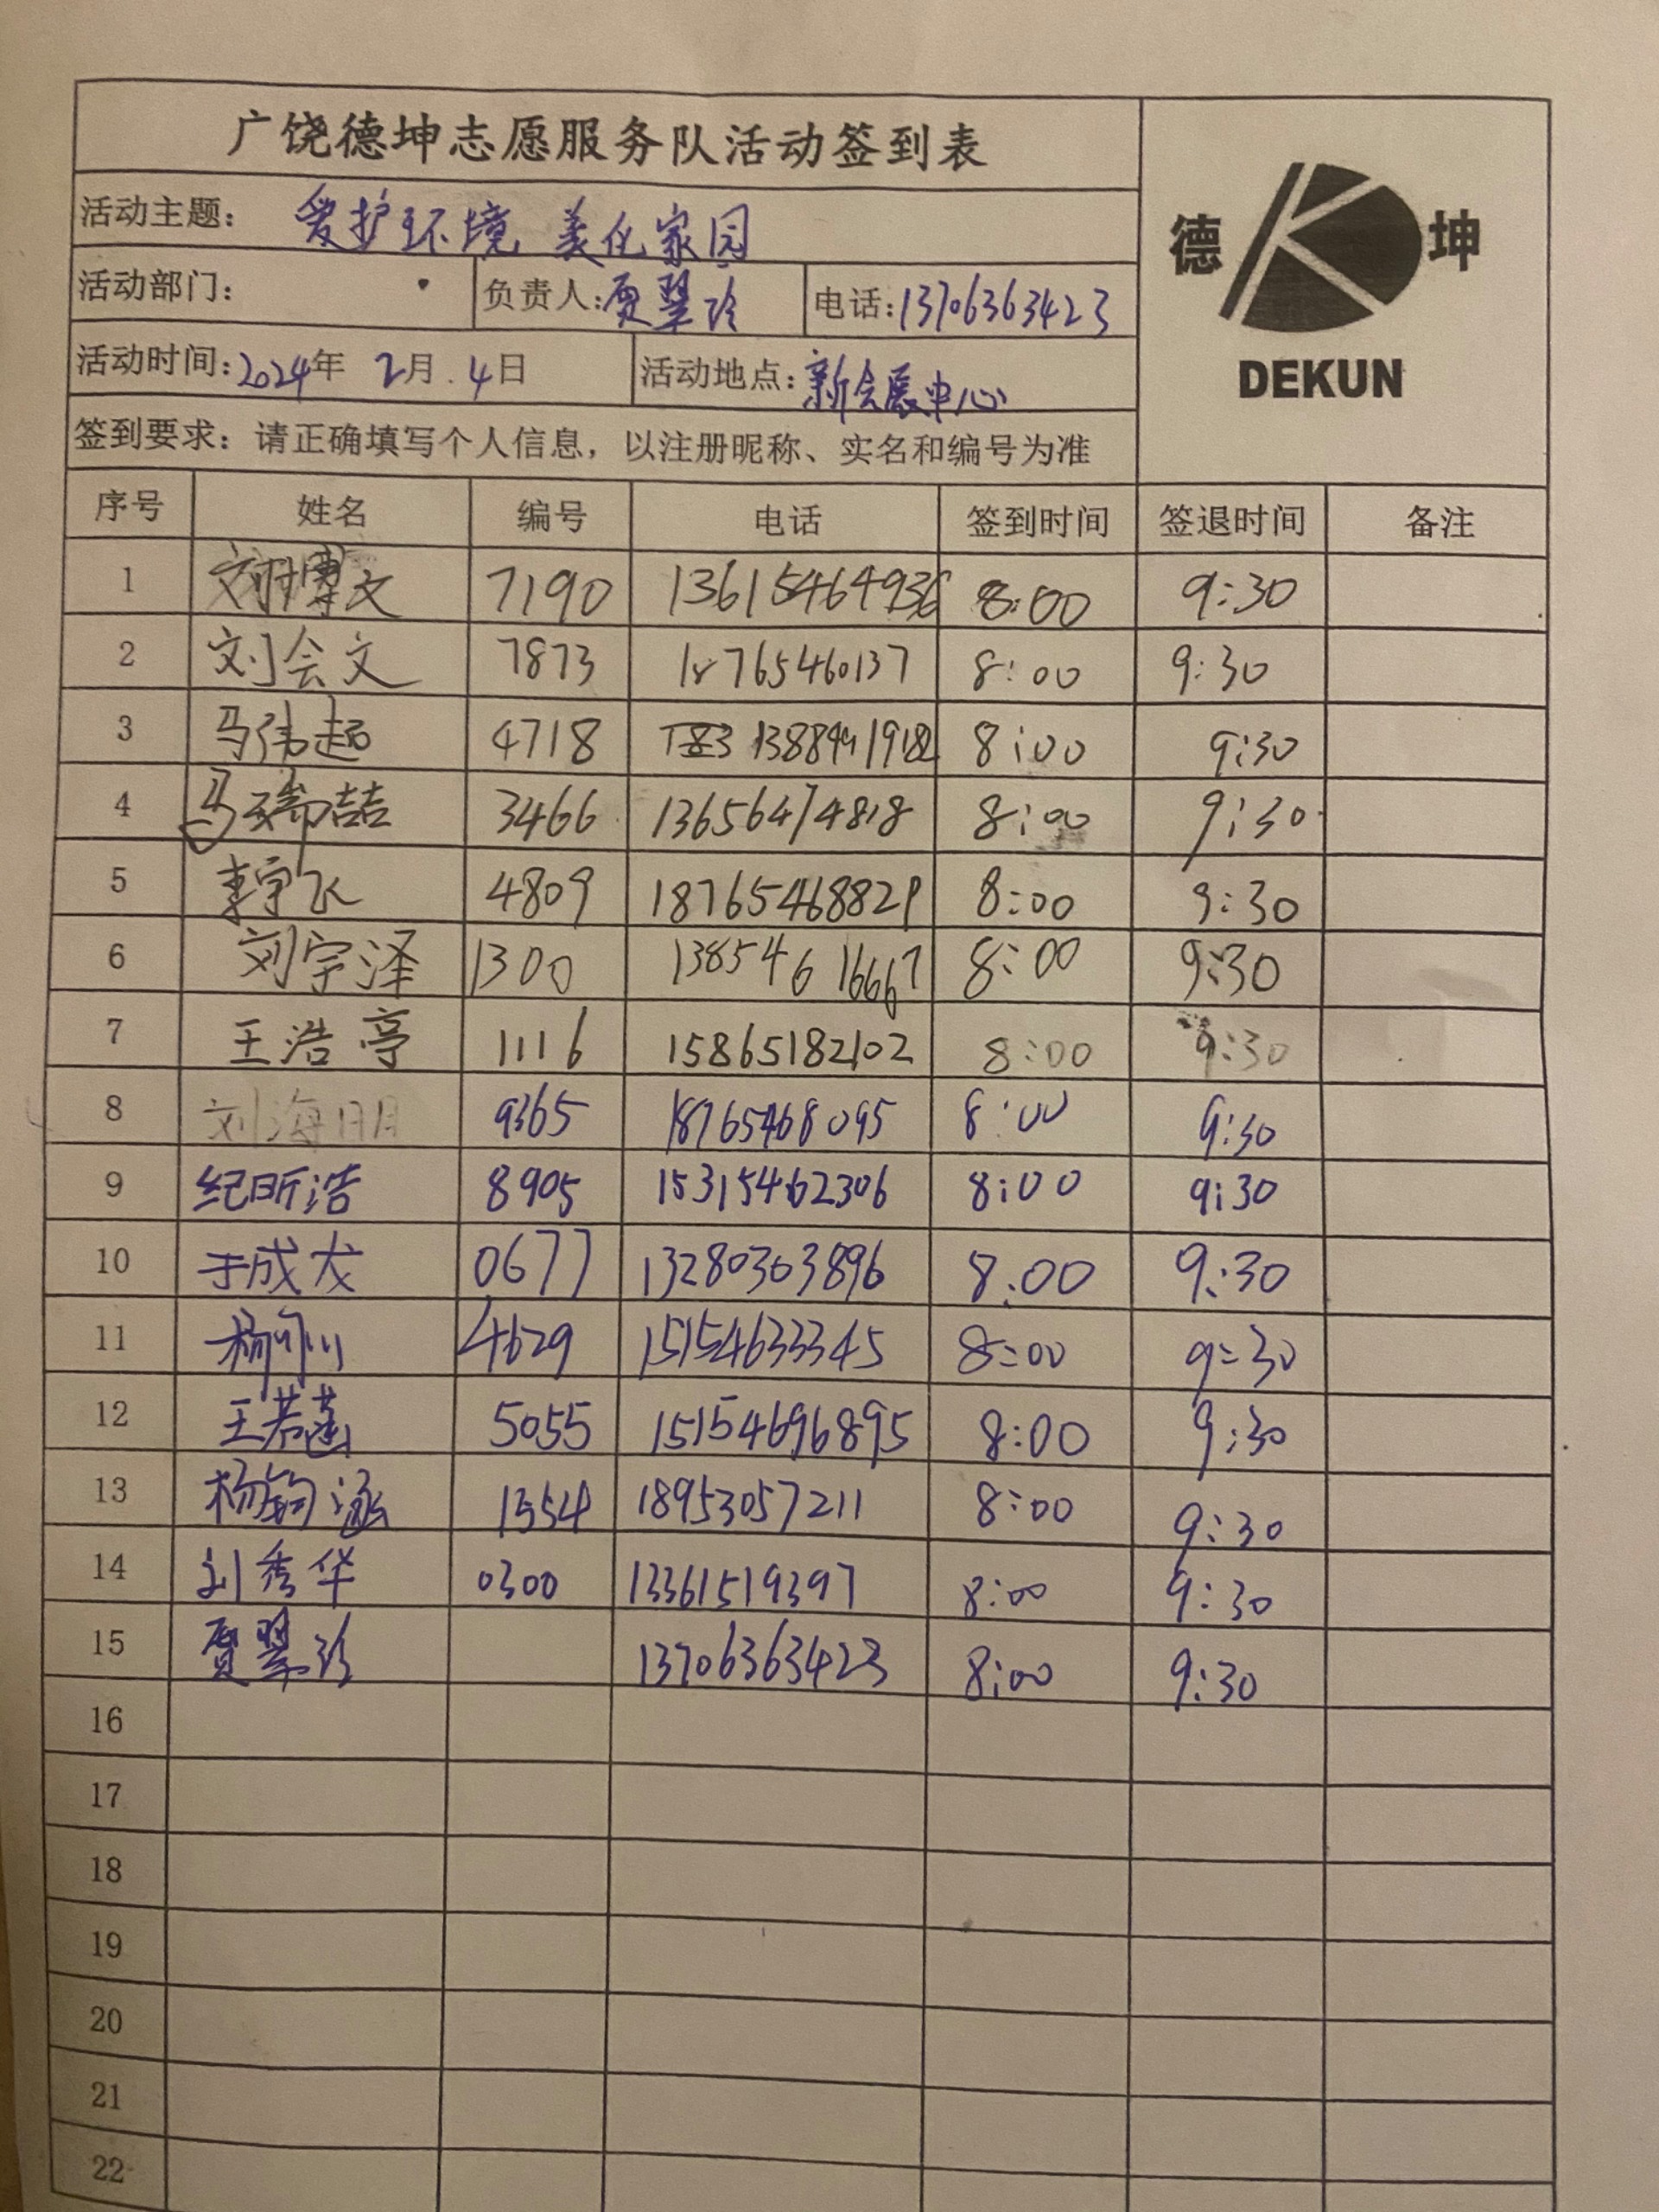 广饶德坤志愿服务队活动签到表
德 坤
DEKUN
活动主题： 爱护环境 美化家园
活动部门： 负责人：贾翠玲 电话：13706363423
活动时间：2024年 2月 4日 活动地点：新会展中心
签到要求：请正确填写个人信息，以注册昵称、实名和编号为准
序号 姓名 编号 电话 签到时间 签退时间 备注
1 刘博文 7190 13615464936 8:00 9:30
2 刘会文 7873 18765460137 8:00 9:30
3 马伟超 4718 8:00 9:30
4 马瑞喆 3466 13656474818 8:00 9:30
5 李宇飞 4809 18765468829 8:00 9:30
6 刘宇泽 1300 13854616667 8:00 9:30
7 王浩亭 1116 15865182102 8:00 9:30
8 刘海明 9365 18765468095 8:00 9:30
9 纪昕浩 8905 15315462306 8:00 9:30
10 于成龙 0677 13280303896 8:00 9:30
11 4629 15154633345 8:00 9:30
12 王若菡 5055 15154696895 8:00 9:30
13 杨钧涵 1554 18953057211 8:00 9:30
14 刘秀华 0300 13361519397 8:00 9:30
15 贾翠玲 13706363423 8:00 9:30
16
17
18
19
20
21
22